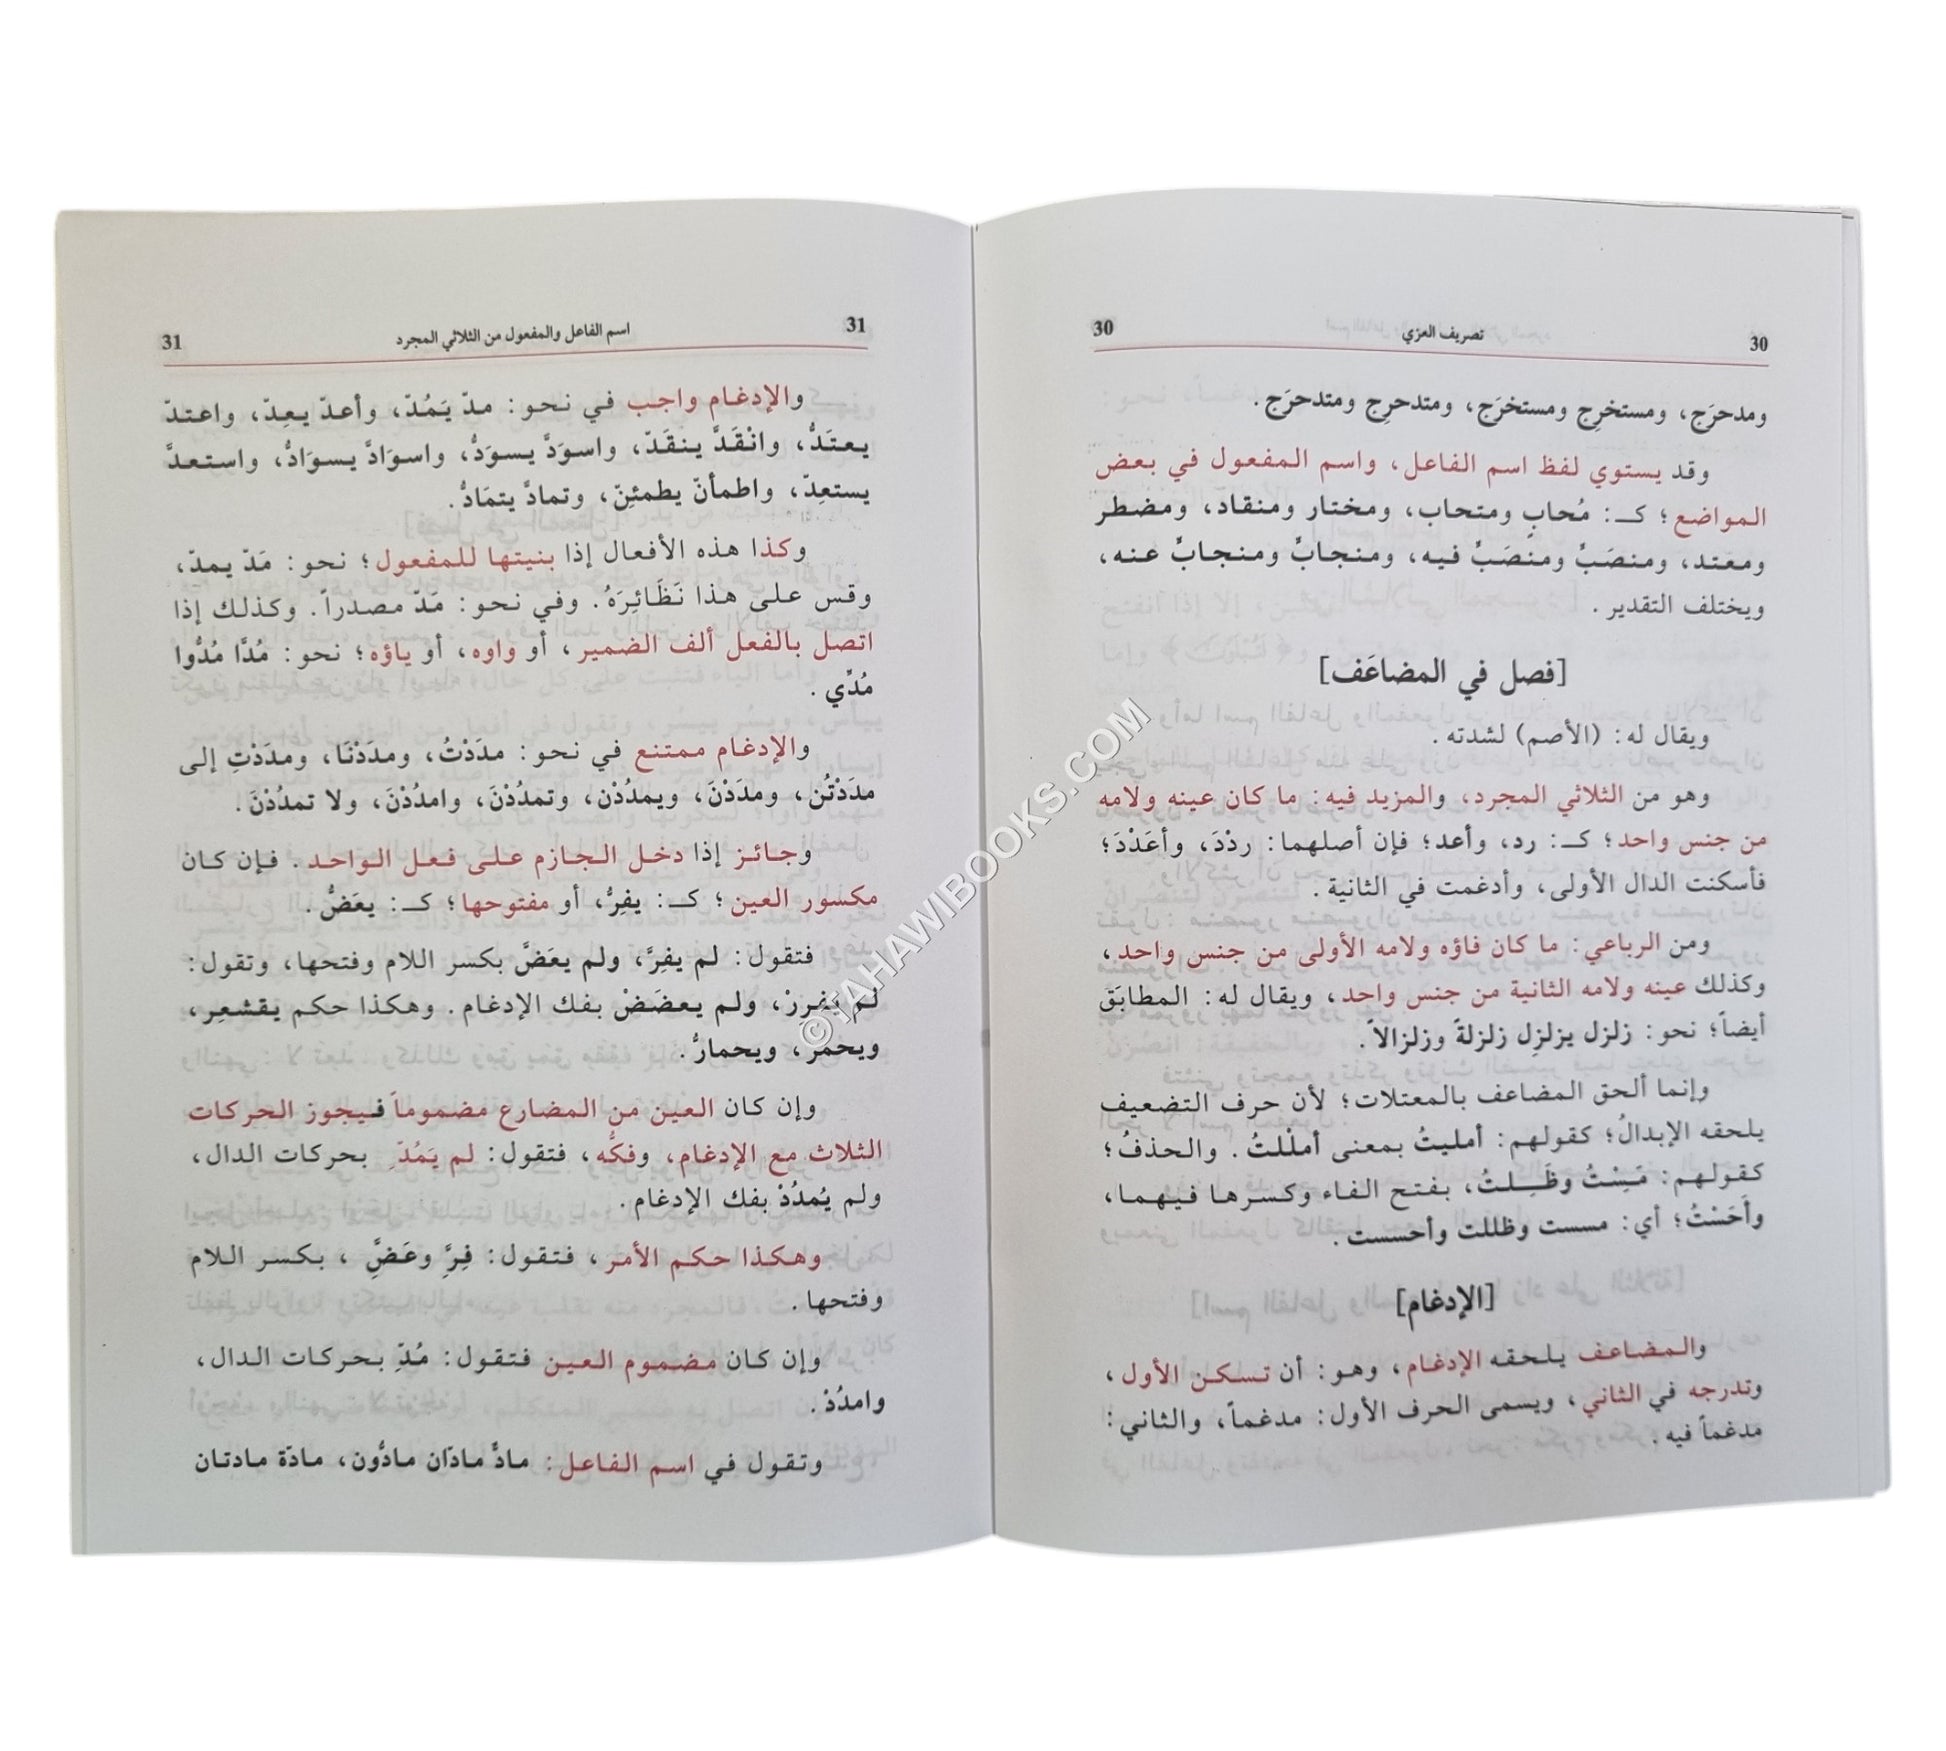 30 تصريف العزي 30
ومدحرَج، ومستخرِج ومستخرَج، ومتدحرِج ومتدحرَج.
وقد يستوي لفظ اسم الفاعل، واسم المفعول في بعض
المواضع؛ كـ: مُحابٍ ومتحاب، ومختار ومنقاد، ومضطر
ومعتد، ومنصَبٍّ ومنصَبٍّ فيه، ومنجابٍّ ومنجابٍّ عنه،
ويختلف التقدير.
[فصل في المضاعَف]
ويقال له: (الأصم) لشدته.
وهو من الثلاثي المجرد، والمزيد فيه: ما كان عينه ولامه
من جنس واحد؛ كـ: رد، وأعد؛ فإن أصلهما: ردْدَ، وأعَدْدَ؛
فأسكنت الدال الأولى، وأدغمت في الثانية.
ومن الرباعي: ما كان فاؤه ولامه الأولى من جنس واحد،
وكذلك عينه ولامه الثانية من جنس واحد، ويقال له: المطابَق
أيضاً؛ نحو: زلزل يزلزِل زلزلةً وزلزالاً.
وإنما ألحق المضاعف بالمعتلات؛ لأن حرف التضعيف
يلحقه الإبدالُ؛ كقولهم: أمليتُ بمعنى أملْلتُ. والحذفُ؛
كقولهم: مَِسْتُ وظَِلتُ، بفتح الفاء وكسرها فيهما،
وأَحَسْتُ؛ أي: مسست وظللت وأحسست.
[الإدغام]
والمضاعف يلحقه الإدغام، وهو: أن تسكن الأول،
وتدرجه في الثاني، ويسمى الحرف الأول: مدغماً، والثاني:
مدغماً فيه.
31 اسم الفاعل والمفعول من الثلاثي المجرد 31
والإدغام واجب في نحو: مدّ يَمُدّ، وأعدّ يعِدّ، واعتدّ
يعتَدُّ، وانْقَدَّ ينقَدّ، واسوَدَّ يسوَدُّ، واسوَادَّ يسوَادُّ، واستعدَّ
يستعِدّ، واطمأنّ يطمئِنّ، وتمادَّ يتمَادُّ.
وكذا هذه الأفعال إذا بنيتها للمفعول؛ نحو: مَدّ يمدّ،
وقس على هذا نَظَائِرَهُ. وفي نحو: مَدّ مصدراً. وكذلك إذا
اتصل بالفعل ألف الضمير، أو واوه، أو ياؤه؛ نحو: مُدَّا مُدُّوا
مُدِّي.
والإدغام ممتنع في نحو: مدَدْتُ، ومدَدْنَا، ومدَدْتِ إلى
مدَدْتُن، ومدَدْنَ، ويمدُدْن، وتمدُدْنَ، وامدُدْنَ، ولا تمدُدْنَ.
وجائز إذا دخل الجازم على فعل الواحد. فإن كان
مكسور العين؛ كـ: يفِرُّ، أو مفتوحها؛ كـ: يعَضُّ.
فتقول: لم يفِرَّ، ولم يعَضَّ بكسر اللام وفتحها، وتقول:
لم يَفرِرْ، ولم يعضَضْ بفك الإدغام. وهكذا حكم يقشعِر،
ويحمَرّ، ويحمارُّ.
وإن كان العين من المضارع مضموماً فيجوز الحركات
الثلاث مع الإدغام، وفكُّه، فتقول: لم يَمُدّ بحركات الدال،
ولم يُمدُدْ بفك الإدغام.
وهكذا حكم الأمر، فتقول: فِرَِّ وعَضَِّ، بكسر اللام
وفتحها.
وإن كان مضموم العين فتقول: مُدّ بحركات الدال،
وامدُدْ.
وتقول في اسم الفاعل: مادٌّ مادّان مادُّون، مادّة مادتان
©TAHAWIBOOKS.COM